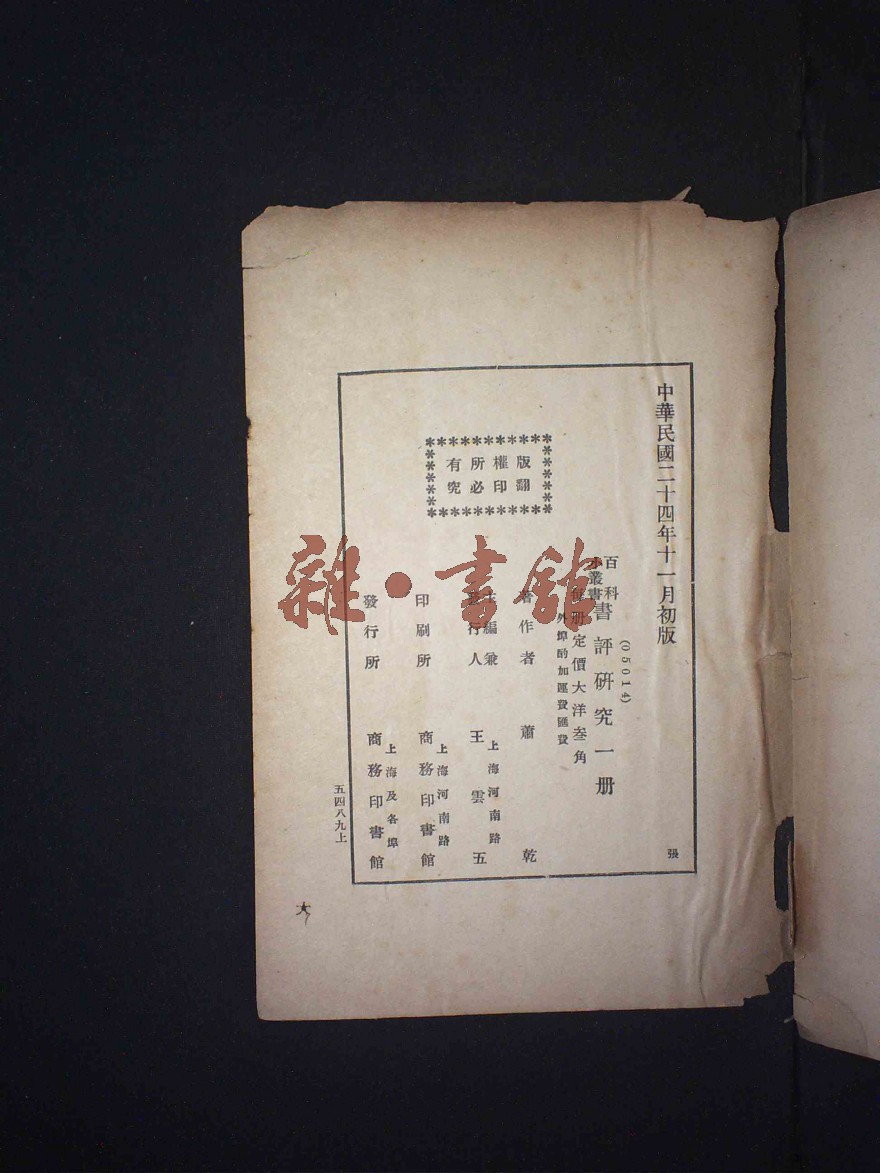 中華民國二十四年十一月初版
張
(05014)
百科
小叢書
書評研究一册
每册定價大洋叁角
外埠酌加運費匯費
版權所有
翻印必究
著作者 蕭乾
主編兼
發行人
上海河南路
王雲五
印刷所
上海河南路
商務印書館
發行所
上海及各埠
商務印書館
五四八九上
雜·書館